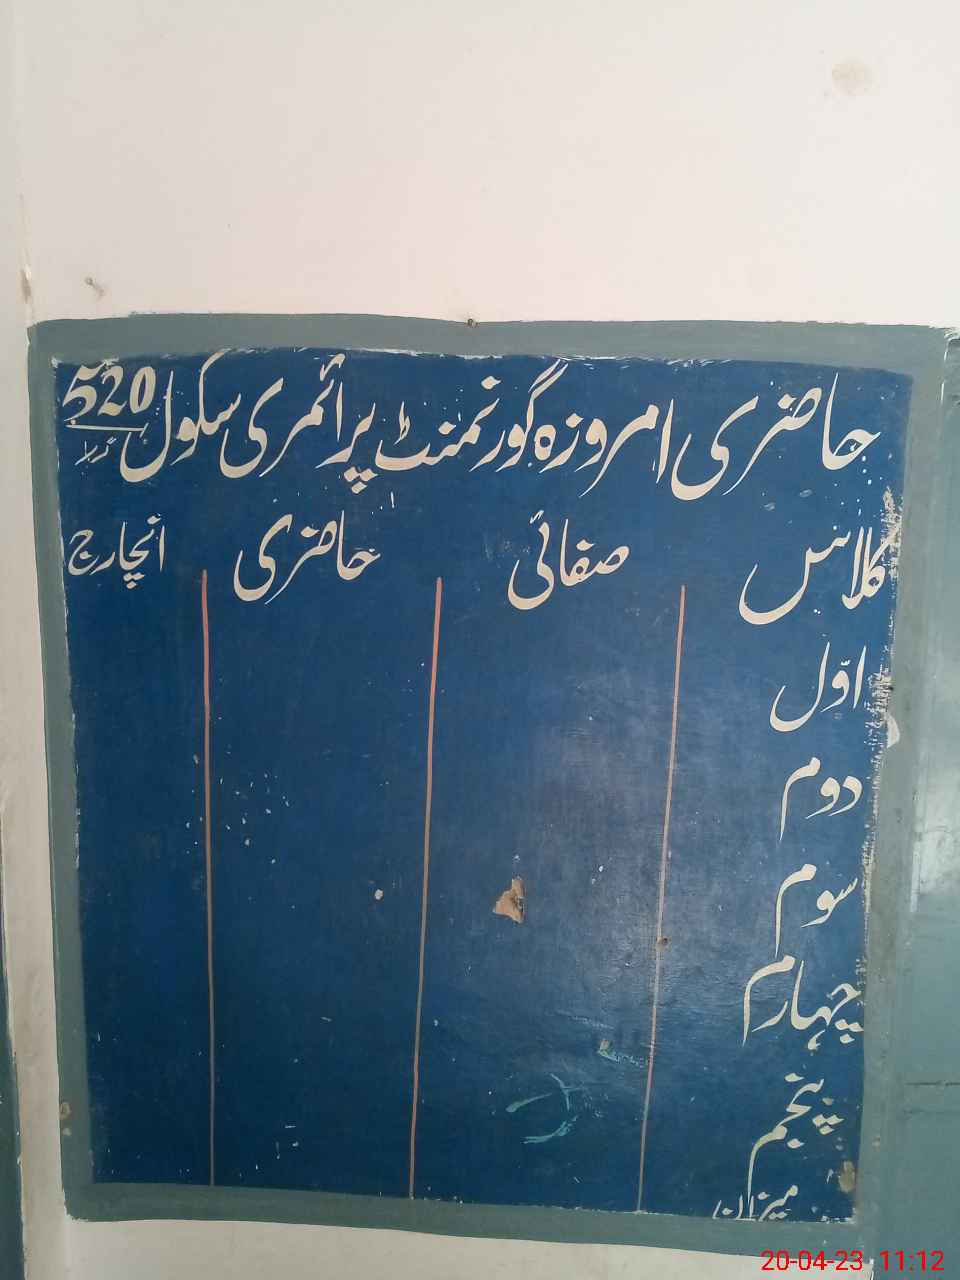 حاضری امروزہ گورنمنٹ پرائمری سکول 520
کلاس صفائی حاضری انچارج
اوّل
دوم
سوم
چہارم
پنجم
میزان
20-04-23 11:12